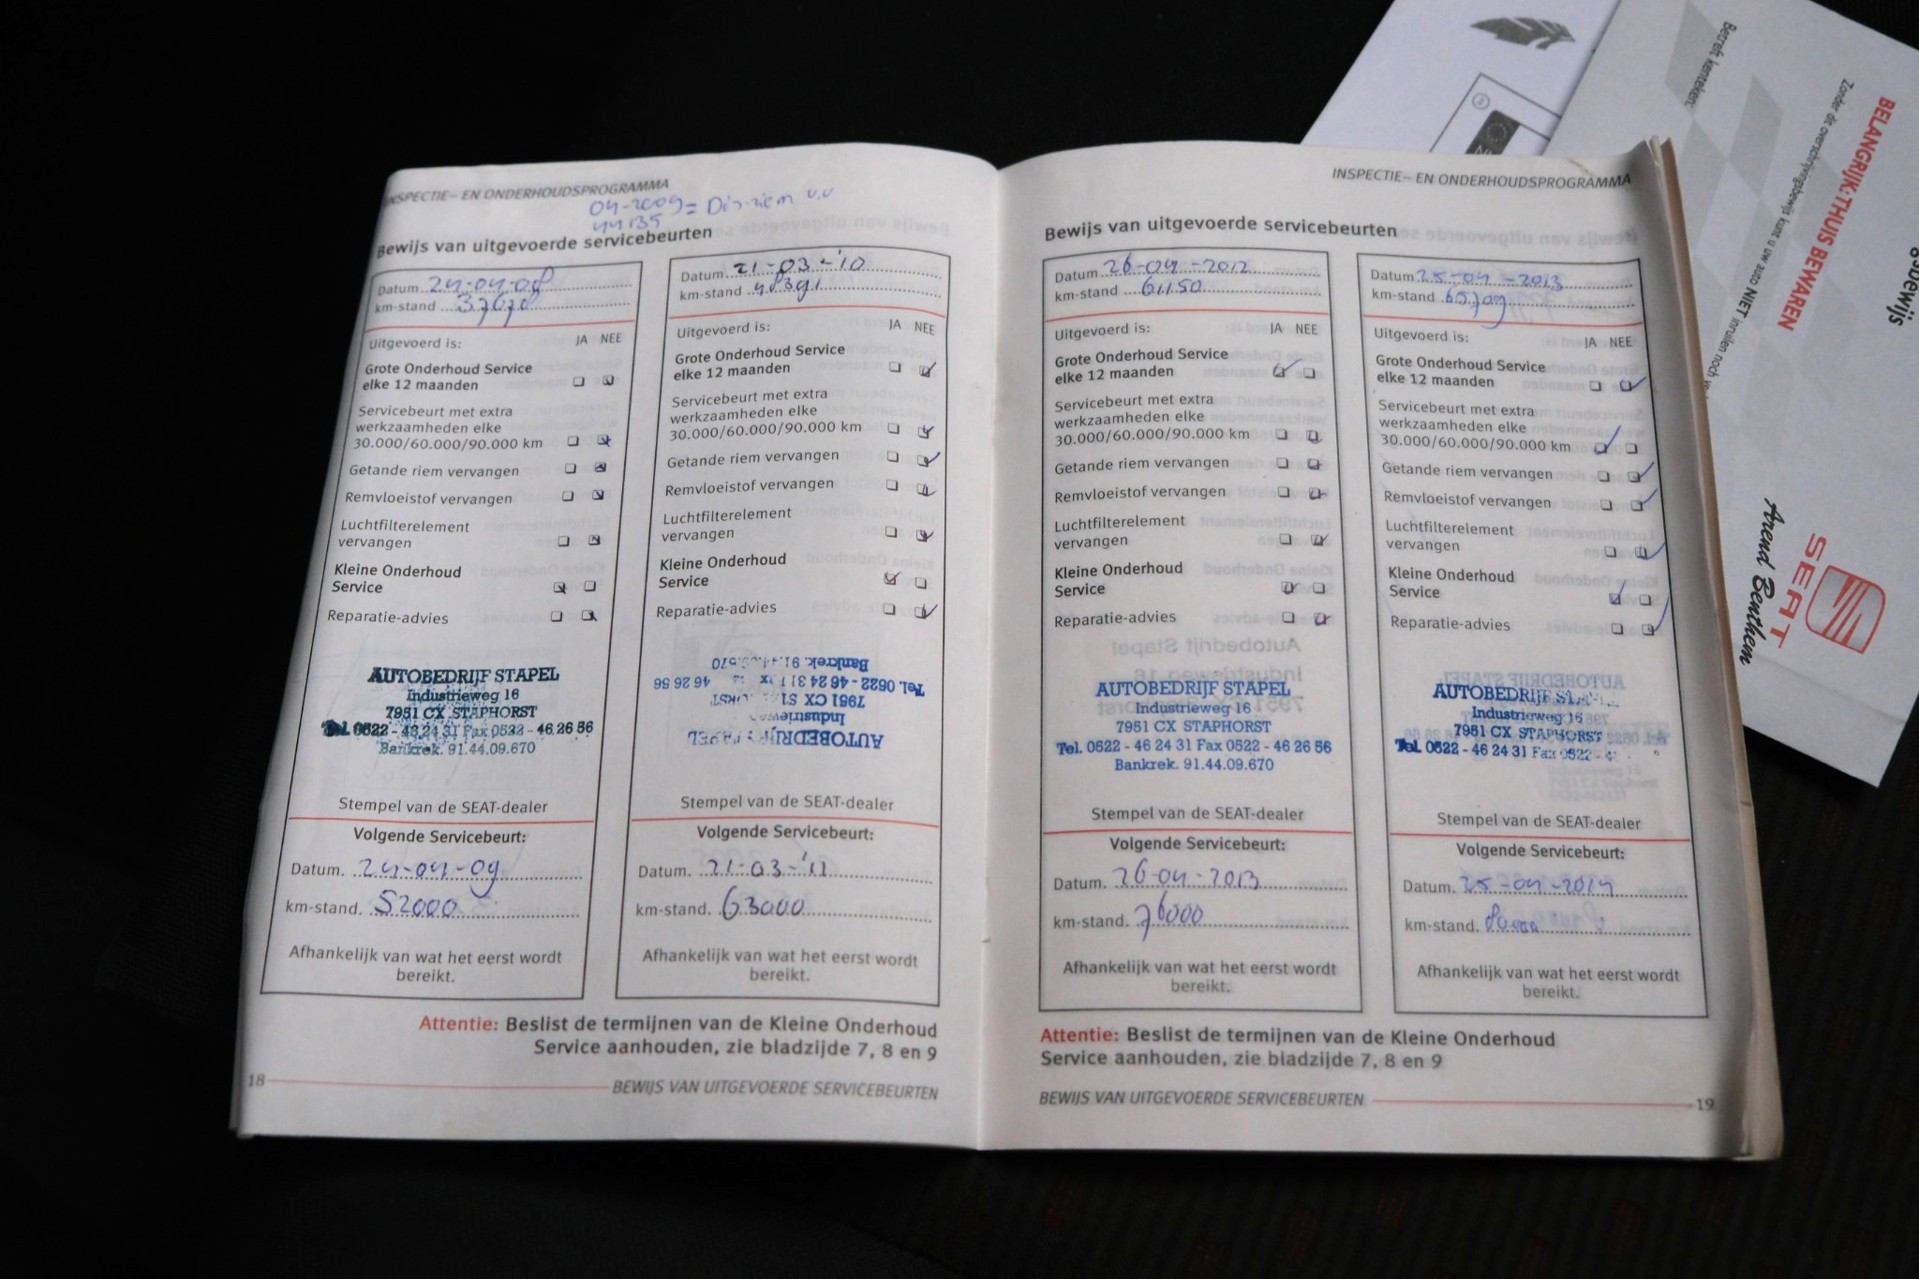 INSPECTIE- EN ONDERHOUDSPROGRAMMA
04-2009= Dis-riem v.v
44135
Bewijs van uitgevoerde servicebeurten
Datum 24-04-08
km-stand 37678
Uitgevoerd is: JA NEE
Grote Onderhoud Service
elke 12 maanden
Servicebeurt met extra
werkzaamheden elke
30.000/60.000/90.000 km
Getande riem vervangen
Remvloeistof vervangen
Luchtfilterelement
vervangen
Kleine Onderhoud
Service
Reparatie-advies
AUTOBEDRIJF STAPEL
Industrieweg 16
7951 CX STAPHORST
Tel. 0522 - 46 24 31 Fax 0522 - 46 26 56
Bankrek. 91.44.09.670
Stempel van de SEAT-dealer
Volgende Servicebeurt:
Datum. 24-04-09
km-stand. 52000
Afhankelijk van wat het eerst wordt
bereikt.
Datum 21-03-'10
km-stand 48391
Uitgevoerd is: JA NEE
Grote Onderhoud Service
elke 12 maanden
Servicebeurt met extra
werkzaamheden elke
30.000/60.000/90.000 km
Getande riem vervangen
Remvloeistof vervangen
Luchtfilterelement
vervangen
Kleine Onderhoud
Service
Reparatie-advies
AUTOBEDRIJF STAPEL
Industrieweg
7951 CX ST
Tel. 0522 - 46 24 31 46 26 56
Bankrek. 91.44.09.670
Stempel van de SEAT-dealer
Volgende Servicebeurt:
Datum. 21-03-'11
km-stand. 63000
Afhankelijk van wat het eerst wordt
bereikt.
Attentie: Beslist de termijnen van de Kleine Onderhoud
Service aanhouden, zie bladzijde 7, 8 en 9
18 BEWIJS VAN UITGEVOERDE SERVICEBEURTEN
INSPECTIE- EN ONDERHOUDSPROGRAMMA
Bewijs van uitgevoerde servicebeurten
Datum 26-04-2012
km-stand 61150
Uitgevoerd is: JA NEE
Grote Onderhoud Service
elke 12 maanden
Servicebeurt met extra
werkzaamheden elke
30.000/60.000/90.000 km
Getande riem vervangen
Remvloeistof vervangen
Luchtfilterelement
vervangen
Kleine Onderhoud
Service
Reparatie-advies
AUTOBEDRIJF STAPEL
Industrieweg 16
7951 CX STAPHORST
Tel. 0522 - 46 24 31 Fax 0522 - 46 26 56
Bankrek. 91.44.09.670
Stempel van de SEAT-dealer
Volgende Servicebeurt:
Datum. 26-04-2013
km-stand. 76000
Afhankelijk van wat het eerst wordt
bereikt.
Datum 25-04-2013
km-stand 65709
Uitgevoerd is: JA NEE
Grote Onderhoud Service
elke 12 maanden
Servicebeurt met extra
werkzaamheden elke
30.000/60.000/90.000 km
Getande riem vervangen
Remvloeistof vervangen
Luchtfilterelement
vervangen
Kleine Onderhoud
Service
Reparatie-advies
AUTOBEDRIJF
Industrieweg 16
7951 CX STAPHORST
Tel. 0522 - 46 24 31 Fax 0522 -
Stempel van de SEAT-dealer
Volgende Servicebeurt:
Datum. 25-04-2014
km-stand. 80000
Afhankelijk van wat het eerst wordt
bereikt.
Attentie: Beslist de termijnen van de Kleine Onderhoud
Service aanhouden, zie bladzijde 7, 8 en 9
BEWIJS VAN UITGEVOERDE SERVICEBEURTEN 19
Betreft kenteken:
Zonder dit overschrijvingsbewijs kunt u uw auto NIET inruilen noch
BELANGRIJK: THUIS BEWAREN
SEAT
Arend Benthem